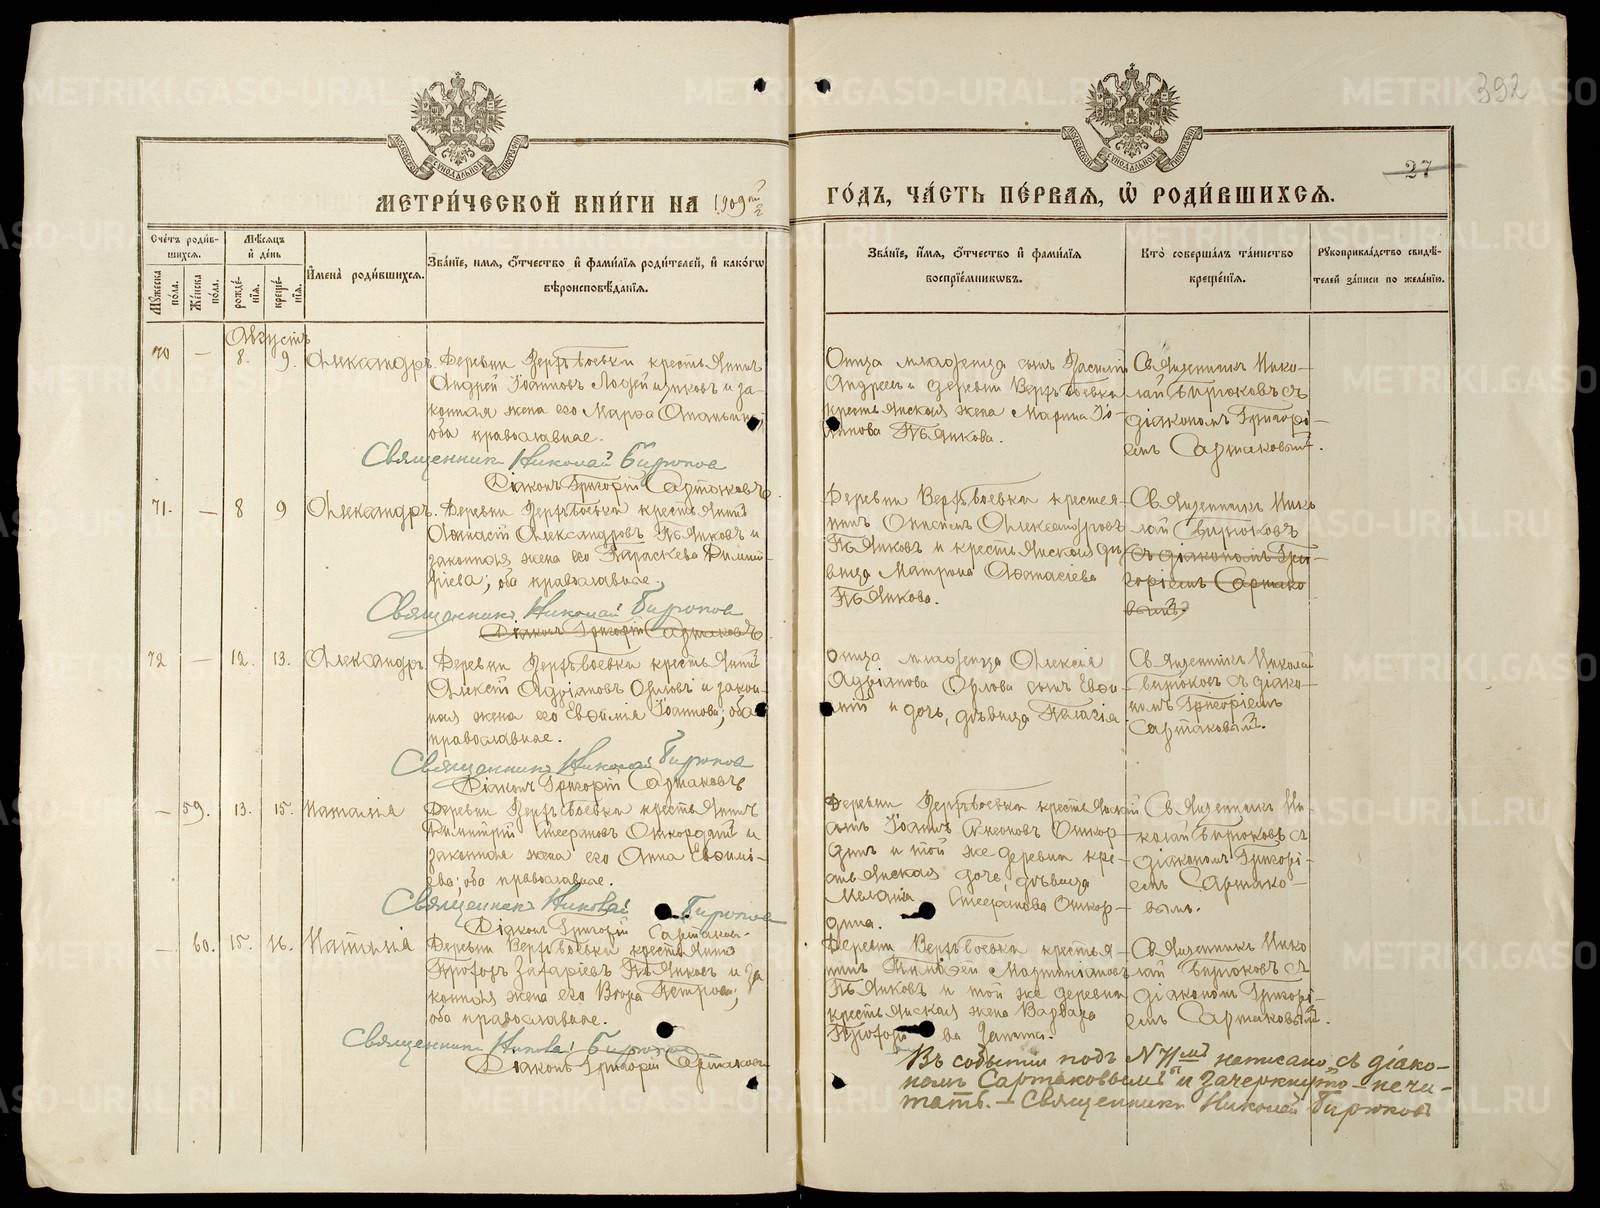 392
27
МЕТРИ́ЧЕСКОЙ КНИ́ГИ НА 1909й
ГО́ДЪ, ЧА́СТЬ ПЕ́РВАЯ, Ѡ РОДИ́ВШИХСЯ.
Сче́тъ роди́вшихся.
Мѣ́сяцъ и де́нь
Мꙋ́жеска по́ла.
Же́нска по́ла.
рожде́нїя.
креще́нїя.
И́мена̀ роди́вшихся.
Зва́нїе, и́мя, ѻ́тчество и фами́лїя роди́телей, и како́гѡ
вѣроисповѣ́данїя.
Зва́нїе, и́мя, ѻ́тчество и фами́лїя
воспрїе́мникѡвъ.
Кто̀ соверша́лъ та́инство
креще́нїя.
Рꙋкоприкла́дство свидѣ́-
телей за́писи по жела́нїю.
Августъ
70 — 8. 9. Александръ.
Деревни Верхъ-Боевки крестьянинъ
Андрей Іоанновъ и за-
конная жена его Марѳа Ананьина,
оба православные.
Священникъ Николай Бирюковъ
Діаконъ Григорій Сартаковъ
Отца младенца сынъ Василій
Андреевъ и деревни Верхъ-Боевки
крестьянская жена Марина Іо-
аннова Пьянкова.
Священникъ Нико-
лай Бирюковъ съ
діакономъ Григорі-
емъ Сартаковымъ.
71. — 8 9 Александръ.
Деревни Верхъ-Боевки крестьянинъ
Аѳанасій Александровъ Пьянковъ и
законная жена его Параскева Димит-
ріева; оба православные.
Священникъ Николай Бирюковъ
Діаконъ Григорій Сартаковъ
Деревни Верхъ-Боевки крестья-
нинъ Онисимъ Александровъ
Пьянковъ и крестьянская дѣ-
вица Матрона Аѳанасіева
Пьянкова.
Священникъ Нико-
лай Бирюковъ
съ діакономъ Гри-
горіемъ Сартако-
вымъ
72 — 12. 13. Александръ.
Деревни Верхъ-Боевки крестьянинъ
Алексій Адріановъ Орловъ и закон-
ная жена его Евѳимія Іоаннова; оба
православные.
Священникъ Николай Бирюковъ
Діаконъ Григорій Сартаковъ
Отца младенца Алексія
Адріанова Орлова сынъ Евѳи-
мій и дочь, дѣвица Пелагія
Священникъ Николай
Бирюковъ съ діако-
номъ Григоріемъ
Сартаковымъ.
— 59. 13. 15. Наталія
Деревни Верхъ-Боевки крестьянинъ
Димитрій Стефановъ и
законная жена его Анна Евѳимі-
ева; оба православные.
Священникъ Николай Бирюковъ
Діаконъ Григорій Сартаковъ
Деревни Верхъ-Боевки крестьянскій
сынъ Іоаннъ
и той же деревни кре-
стьянская дочь, дѣвица
Меланія Стефанова
Священникъ Ни-
колай Бирюковъ съ
діакономъ Григорі-
емъ Сартако-
вымъ.
— 60. 15. 16. Наталія
Деревни Верхъ-Боевки крестьянинъ
Прохоръ Захаріевъ Пьянковъ и за
конная жена его Вѣра Петрова;
оба православные.
Священникъ Николай Бирюковъ
Діаконъ Григорій Сартаковъ
Деревни Верхъ-Боевки крестья-
нинъ Тимоѳей Мартиніановъ
Пьянковъ и той же деревни
крестьянская жена Варвара
Священникъ Нико
лай Бирюковъ съ
діакономъ Григорі-
емъ Сартаковымъ.
Въ событіи подъ № 71мъ написано „съ діако-
номъ Сартаковымъ“ и зачеркнуто — не чи-
тать. — Священникъ Николай Бирюковъ
METRIKI.GASO-URAL.RU